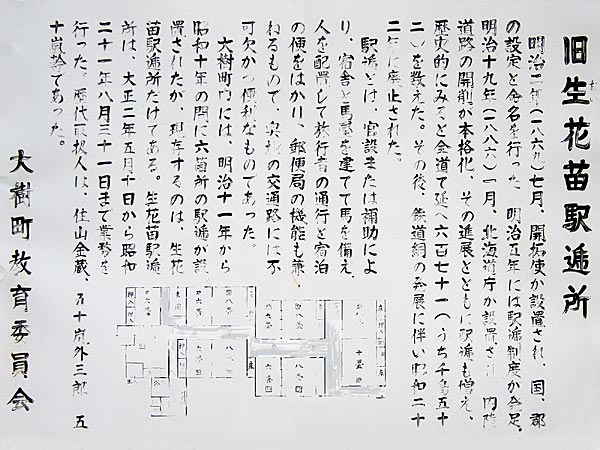 旧生花苗駅逓所
明治二年(一八六九)七月、開拓使が設置され、国、郡
の設定と命名を行った。明治五年には駅逓制度が発足。
明治十九年(一八八六)一月、北海道庁が設置され、内陸
道路の開削が本格化、その進展とともに駅逓も増え、
歴史的にみると全道で延べ六百七十一(うち千島五十
二)を数えた。その後、鉄道網の発展に伴い昭和二十
二年に廃止された。
駅逓とは、官設または補助によ
り、宿舎と馬屋を建てて馬を備え、
人を配置して旅行者の通行と宿泊
の便をはかり、郵便局の機能も兼
ねるもので、奥地の交通路には不
可欠かつ便利なものであった。
大樹町内には、明治十一年から
昭和十年の間に六箇所の駅逓が設
置されたが、現存するのは、生花
苗駅逓所だけである。生花苗駅逓
所は、大正二年五月十日から昭和
二十一年八月三十一日まで業務を
行った。歴代取扱人は、住山金蔵、五十嵐外三郎、五
十嵐捨てあった。
大樹町教育委員会